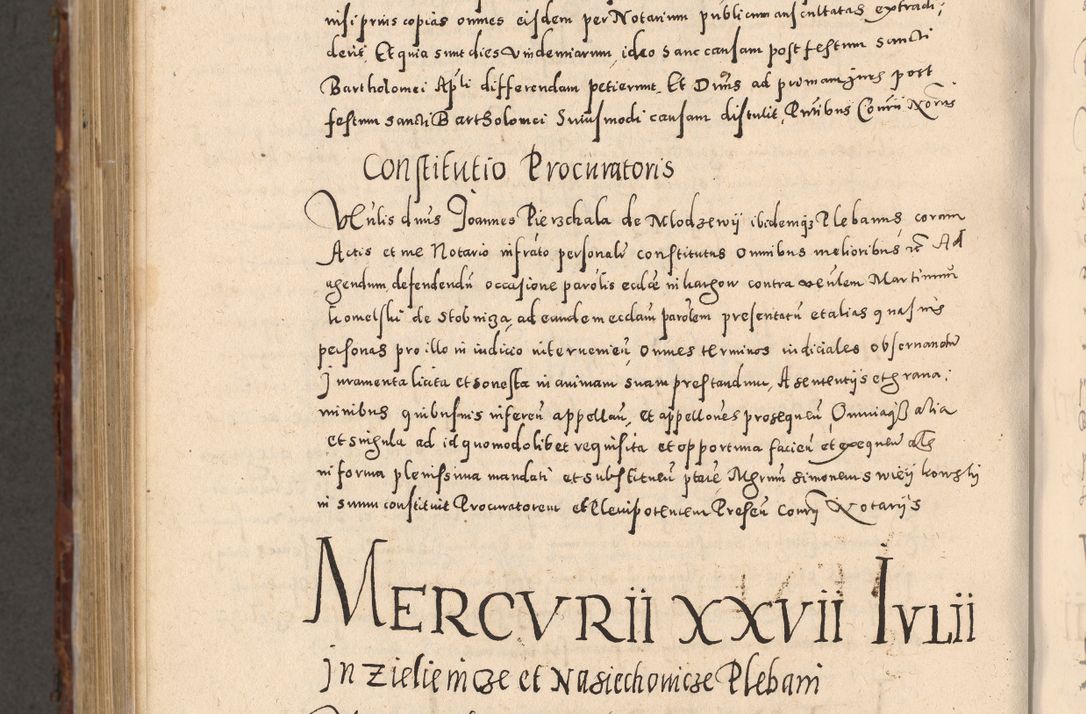 nisi prius copias omnes eisdem per Notarium publicum auscultatas extradi;
derit, Et quia sunt dies vindemiarum, ideo hanc causam post festum sancti
Bartholomei Apli differendam petierunt. Et Dnus ad primam juris post
festum sancti Bartholomei huiusmodi causam distulit, Pntibus Comun Notariis
Constitutio Procuratoris
Venlis dnus Joannes Pierzchala de Mlodzewij ibidemq3 Plebanus coram
Actis et me Notario infrato personalr constitutus Omnibus melioribus rc Ad
agendum, defendendu occasione parolis ecclae in hargow contra venlem Martinum
komelski de Stobnicza, ad eandem ecclam parolem presentatu et alias quasuis
personas pro illo in iudicio interuenien, Omnes terminos iudiciales obseruandu
Juramenta licita et honesta in animam suam prestandum, A sententijs et graua;
minibus quibusuis inferen appellan, et appellones prosequen, Omniaq3 alia
et singula ad id quomodolibet requisita et oportuna facien et exequen etc
in forma plenissima mandati et substituen ptate Mgrum Simonem wieijkowski
in suum constituit Procuratorem et Plenipotentem Presen Comn Notarijs
MERCVRII XXVII IVLII
Jn Zielienicze et Nasiechowicze Plebani